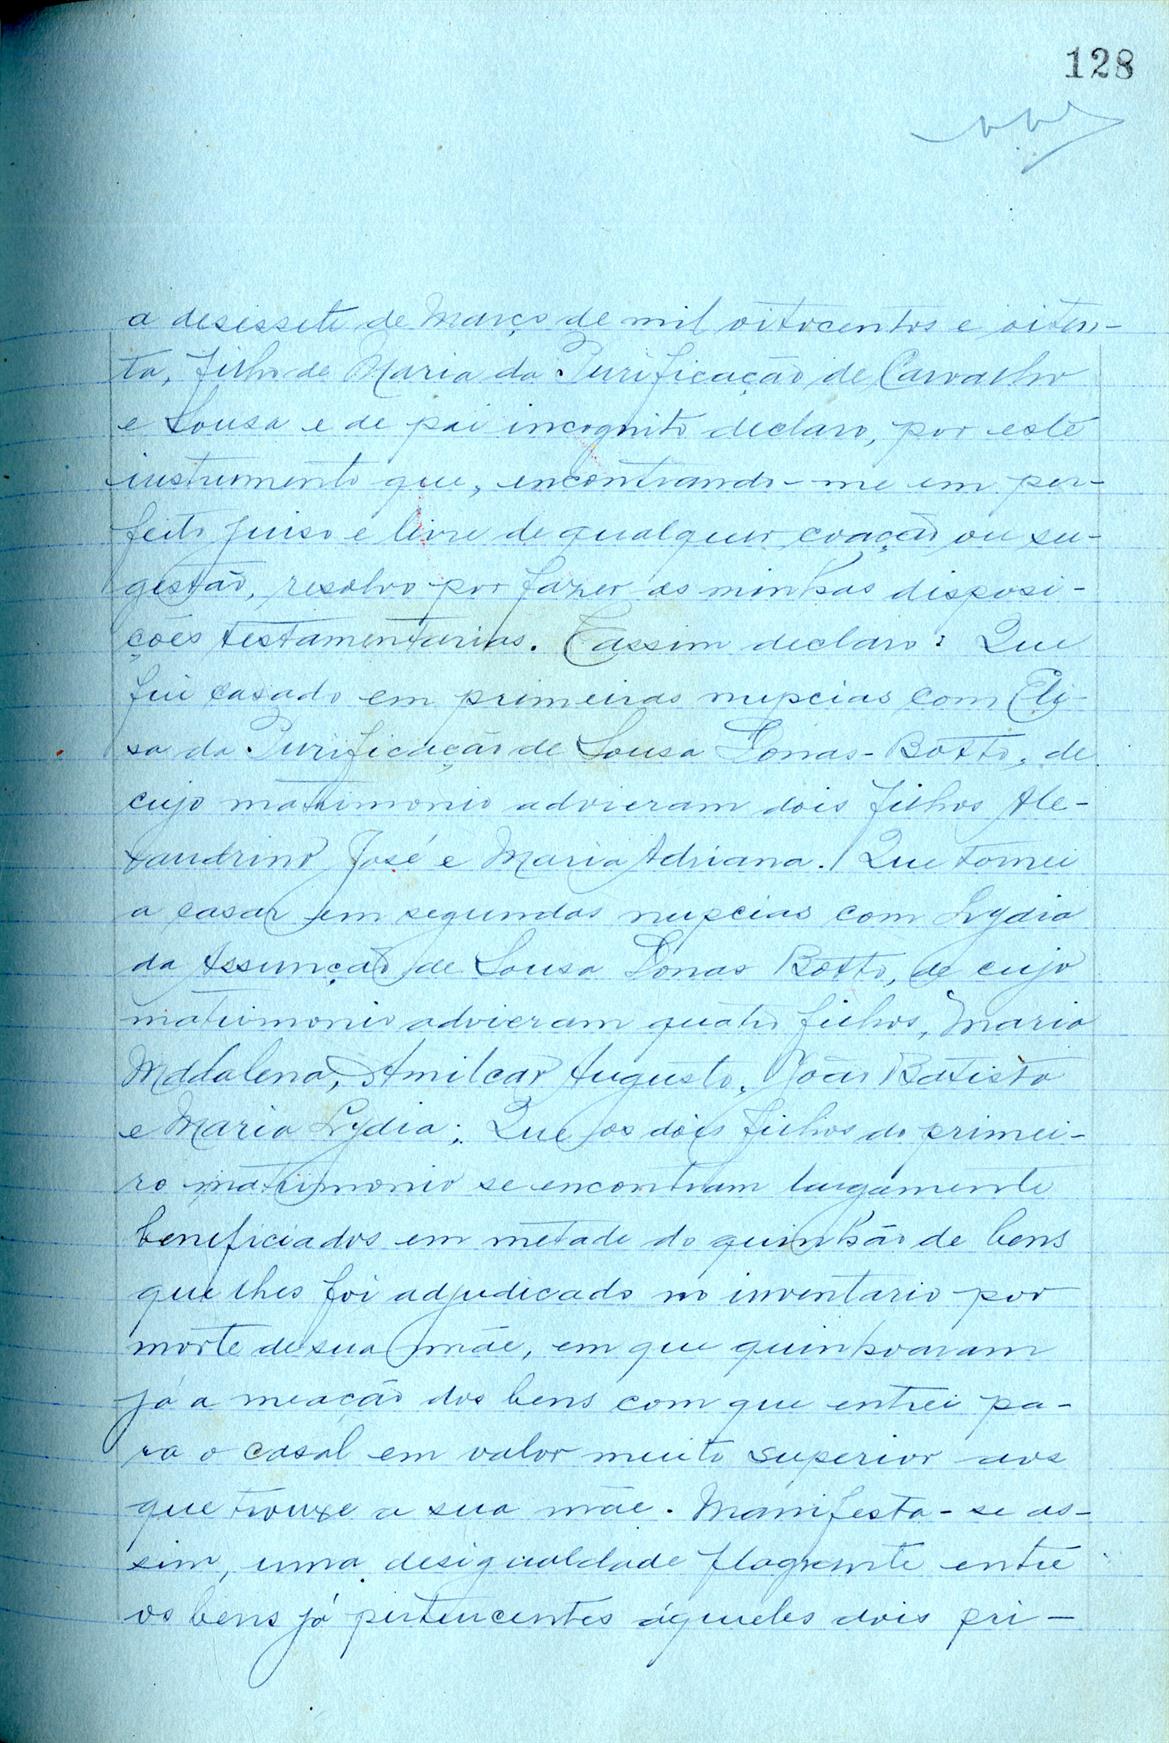 128
a desessete de Março de mil oitocentos e oiten-
ta, filho de Maria da Purificação de Carvalho
e Sousa e de pai incognito declaro, por este
instrumento que, encontrando-me em per-
feito juiso e livre de qualquer coação ou su-
gestão, resolvo por fazer as minhas disposi-
ções testamentarias. E assim declaro: Que
fui casado em primeiras nupcias com Eli-
sa da Purificação de Sousa Donas-Botto, de
cujo matrimonio advieram dois filhos Ale-
xandrino José e Maria Adriana. Que tornei
a casar em segundas nupcias com Lydia
da Assunção de Sousa Donas Botto, de cujo
matrimonio advieram quatro filhos, Maria
Madalena, Amilcar Augusto, João Batista
e Maria Lydia; Que os dois filhos do primei-
ro matrimonio se encontram largamente
beneficiados em metade do quinhão de bens
que lhes foi adjudicado no inventario por
morte de sua mãe, em que quinhoaram
já a meação dos bens com que entrei pa-
ra o casal em valor muito superior aos
que trouxe a sua mãe. Manifesta-se as-
sim, uma desigualdade flagrante entre
os bens já pertencentes áqueles dois pri-